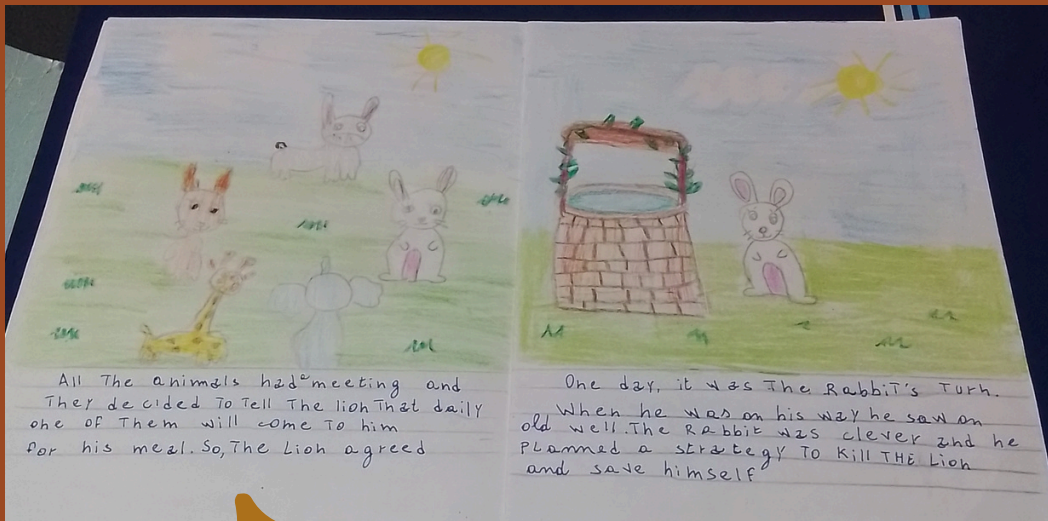 All The animals had a meeting and
They decided To Tell The lion That daily
one of Them will come To him
for his meal. So, The Lion agreed
One day, it was The Rabbit's Turn.
When he was on his way he saw an
old well. The Rabbit was clever and he
planned a strategy To Kill THE Lion
and save himself